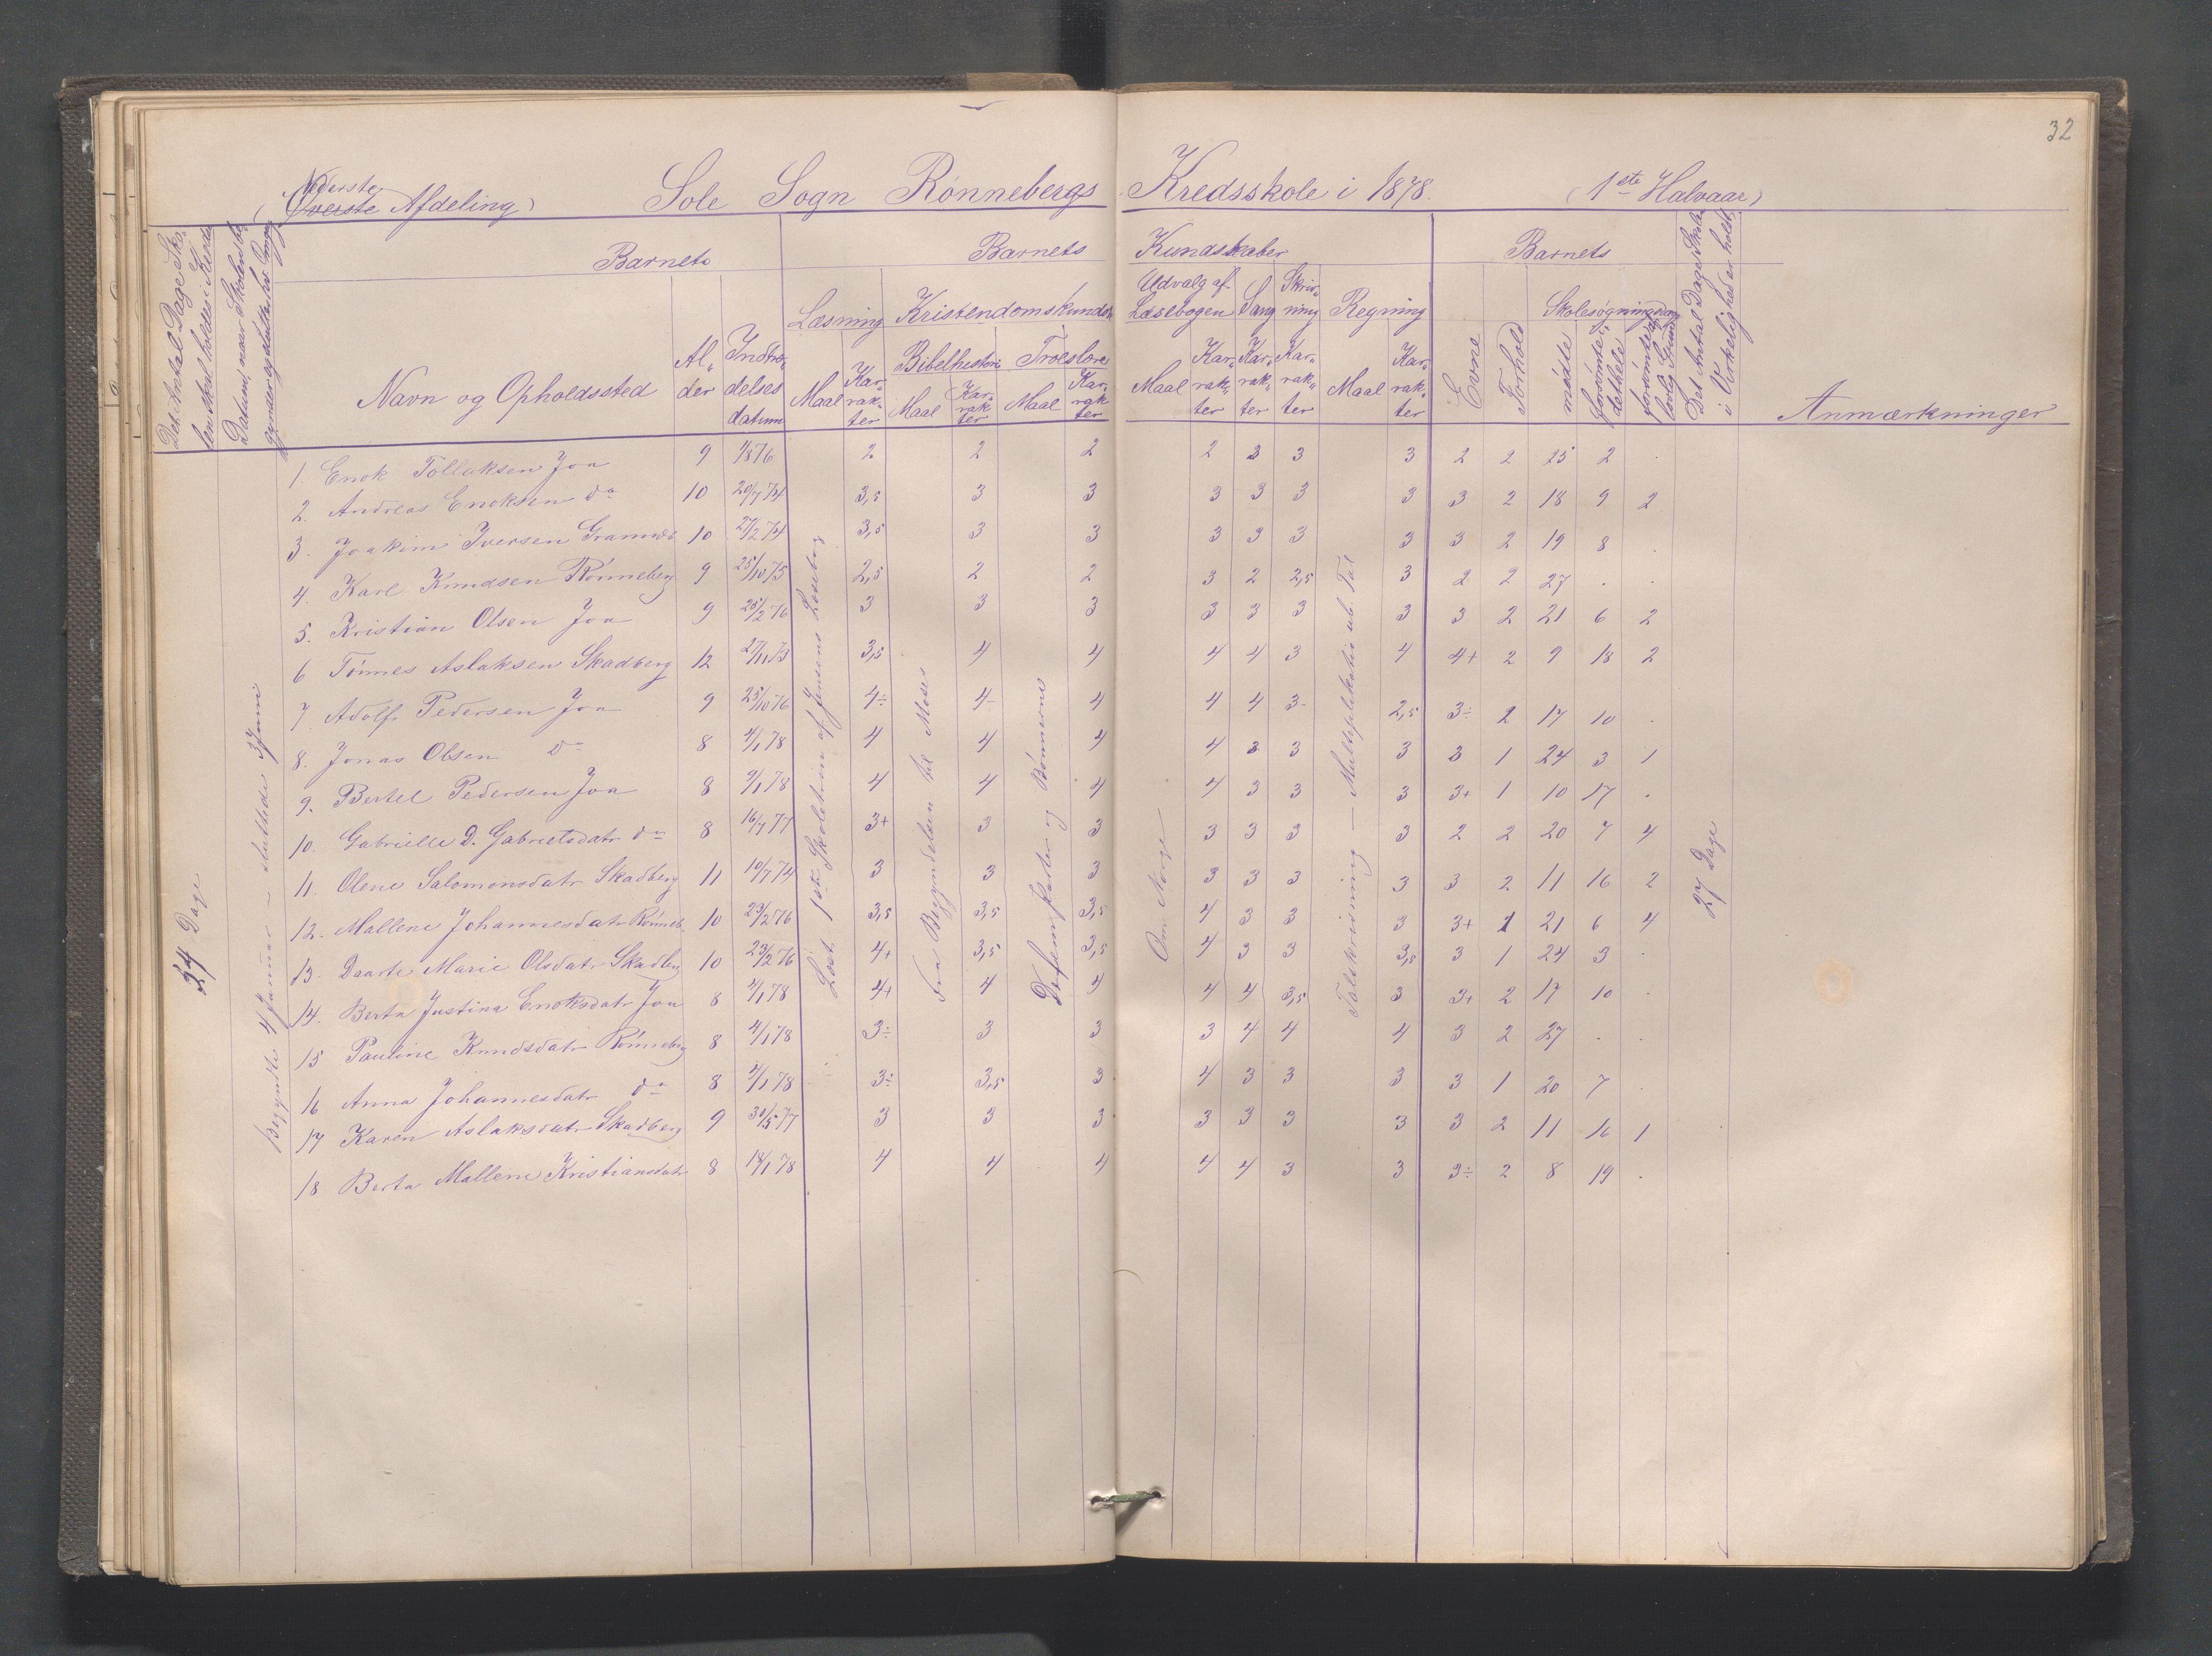 32
Nederste
(Øverste Afdeling) Sole Sogn Rønnebergs Kredsskole i 1878. (1ste Halvaar)
Det Antal Dage Sko-
len skal holdes i Kreds
Datum, naar Skolen be-
gynder og slutter hver Omgang
Barnets
Barnets Kundskaber
Barnets
Det Antal Dage Skole
i Virkelighed er holdt
Navn og Opholdssted
Al-
der
Indtræ-
delses
datum
Læsning
Maal
Kar-
rak-
ter
Kristendomskundsk
Bibelhistorie
Maal
Kar-
rak
ter
Troeslære
Maal
Kar-
rak
ter
Udvalg af
Læsebogen
Maal
Kar-
rak-
ter
Sang
Kar-
rak-
ter
Skriv-
ning
Kar-
rak-
ter
Regning
Maal
Kar-
rak-
ter
Evne
Forhold
Skolesøgningsdage
mødte
forsømte i
det hele
forsømte af
lovlig Grund
Anmærkninger
34 Dage
Begyndte 4 Januar – sluttede 3 Juni
Læst 1ste Skoletrin af Jensens Læsebog
Fra Begyndelsen til Moses
Om Norge
Talskrivning — Multiplikation ub. Tal
27 Dage
1. Enok Tollaksen Joa 9 1/8 76 2 2 2 2 3 3 3 2 2 25 2 .
2. Andreas Enoksen do 10 20/7 74 3,5 3 3 3 3 3 3 3 2 18 9 2
3. Joakim Iversen 10 27/2 74 3,5 3 3 3 3 3 3 3 2 19 8 .
4. Karl Knudsen Rønneberg 9 25/10 75 2,5 2 2 3 2 2,5 3 2 2 27 . .
5. Kristian Olsen Joa 9 25/2 76 3 3 3 3 3 3 3 3 2 21 6 2
6 Tønnes Aslaksen Skadberg 12 27/11 73 3,5 4 4 4 4 3 4 4+ 2 9 18 2
7. Adolf Pedersen Joa 9 25/10 76 4÷ 4- 4 4 4 3- 2,5 3÷ 2 17 10 .
8. Jonas Olsen do 8 4/1 78 4 4 4 4 3 3 3 3 1 24 3 1
9. Bertel Pedersen Joa 8 9/1 78 4 4 4 4 3 3 3 3+ 1 10 17 .
10. Gabrielle D. Gabrielsdatr do 8 16/7 77 3+ 3 3 3 3 3 3 2 2 20 7 4
11. Olene Salomonsdatr Skadberg 11 10/7 74 3 3 3 3 3 3 3 3 2 11 16 2
12. Mallene Johannesdatr Rønneb. 10 23/2 76 3,5 3,5 3,5 4 3 3 3 3+ 1 21 6 4
13. Daarte Marie Olsdatr Skadberg 10 23/2 76 4+ 3,5 3,5 4 3 3 3,5 3 1 24 3 .
14. Berta Justina Enoksdatr Joa 8 4/1 78 4+ 4 4 4 4 3,5 3 3+ 2 17 10 .
15 Pauline Knudsdatr Rønneberg 8 4/1 78 3÷ 3 3 3 4 4 4 3 2 27 . .
16 Anna Johannesdatr do 8 4/1 78 3÷ 3,5 3 4 3 3 3 3 1 20 7 .
17 Karen Aslaksdatr Skadberg 9 30/5 77 3 3 3 3 3 3 3 3 2 11 16 1
18 Berta Mallene Kristiansdatr 8 14/1 78 4 4 4 4 4 3 3 3÷ 2 8 19 .